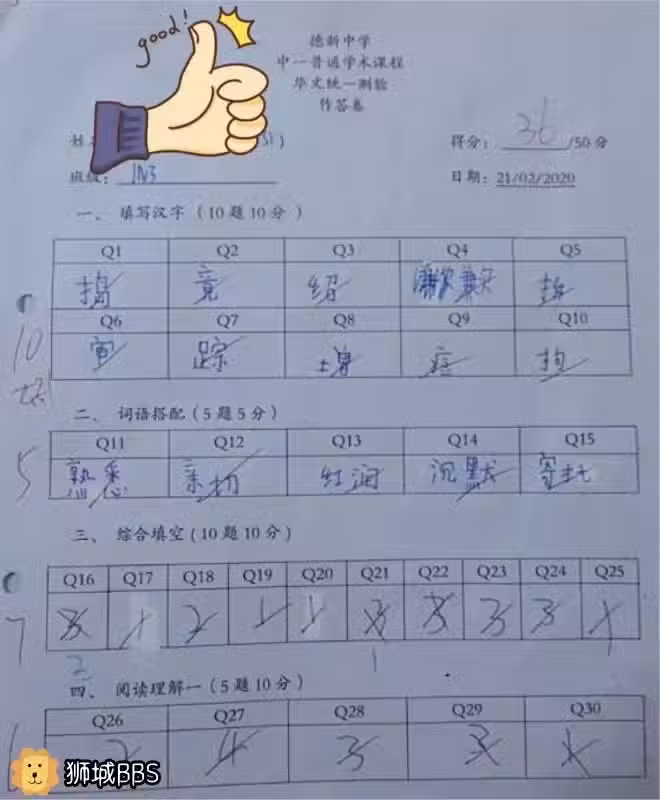 good!
德新中学
中一普通学术课程
华文统一测验
作答卷
得分: 36 /50分
班级: 1N3
日期: 21/02/2020
一、 填写汉字 (10题10分)
Q1 Q2 Q3 Q4 Q5
捣 竟 绍
Q6 Q7 Q8 Q9 Q10
踪
10
二、 词语搭配 (5题5分)
Q11 Q12 Q13 Q14 Q15
5 熟悉 亲切 红润 沉默 寄托
三、 综合填空 (10题10分)
Q16 Q17 Q18 Q19 Q20 Q21 Q22 Q23 Q24 Q25
7 3 1 2 1 1 3 3 3 3 1
2 1
四、 阅读理解一 (5题10分)
Q26 Q27 Q28 Q29 Q30
2 4 3 3 1
狮城BBS